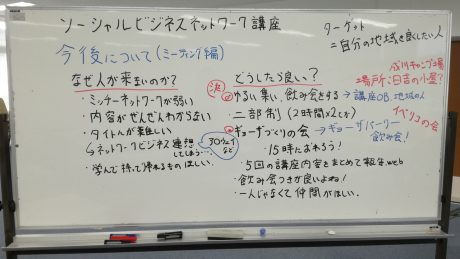 ソーシャルビジネスネットワーク講座
ターゲット
=自分の地域を良したい人
今後について(ミーティング編)
成川キャンプ場
場所:日吉の小屋?
なぜ人が来ないのか?
どうしたら良い?
決
ゆるい集い、飲み会をする→講座OB、地域の人
ミッナーネットワークが弱い
内容がぜんぜんわからない
タイトルが難しい
→ネットワークビジネス連想してしまう…
学んで持って帰れるものほしい。
二部制(2時間×2とか)
の会
ギョーザづくりの会→ギョーザパーリー
飲み会!
15時におわろう!
5回の講座内容をまとめて報告web
飲み会つきが良いよね!
一人じゃなくて仲間がほしい。